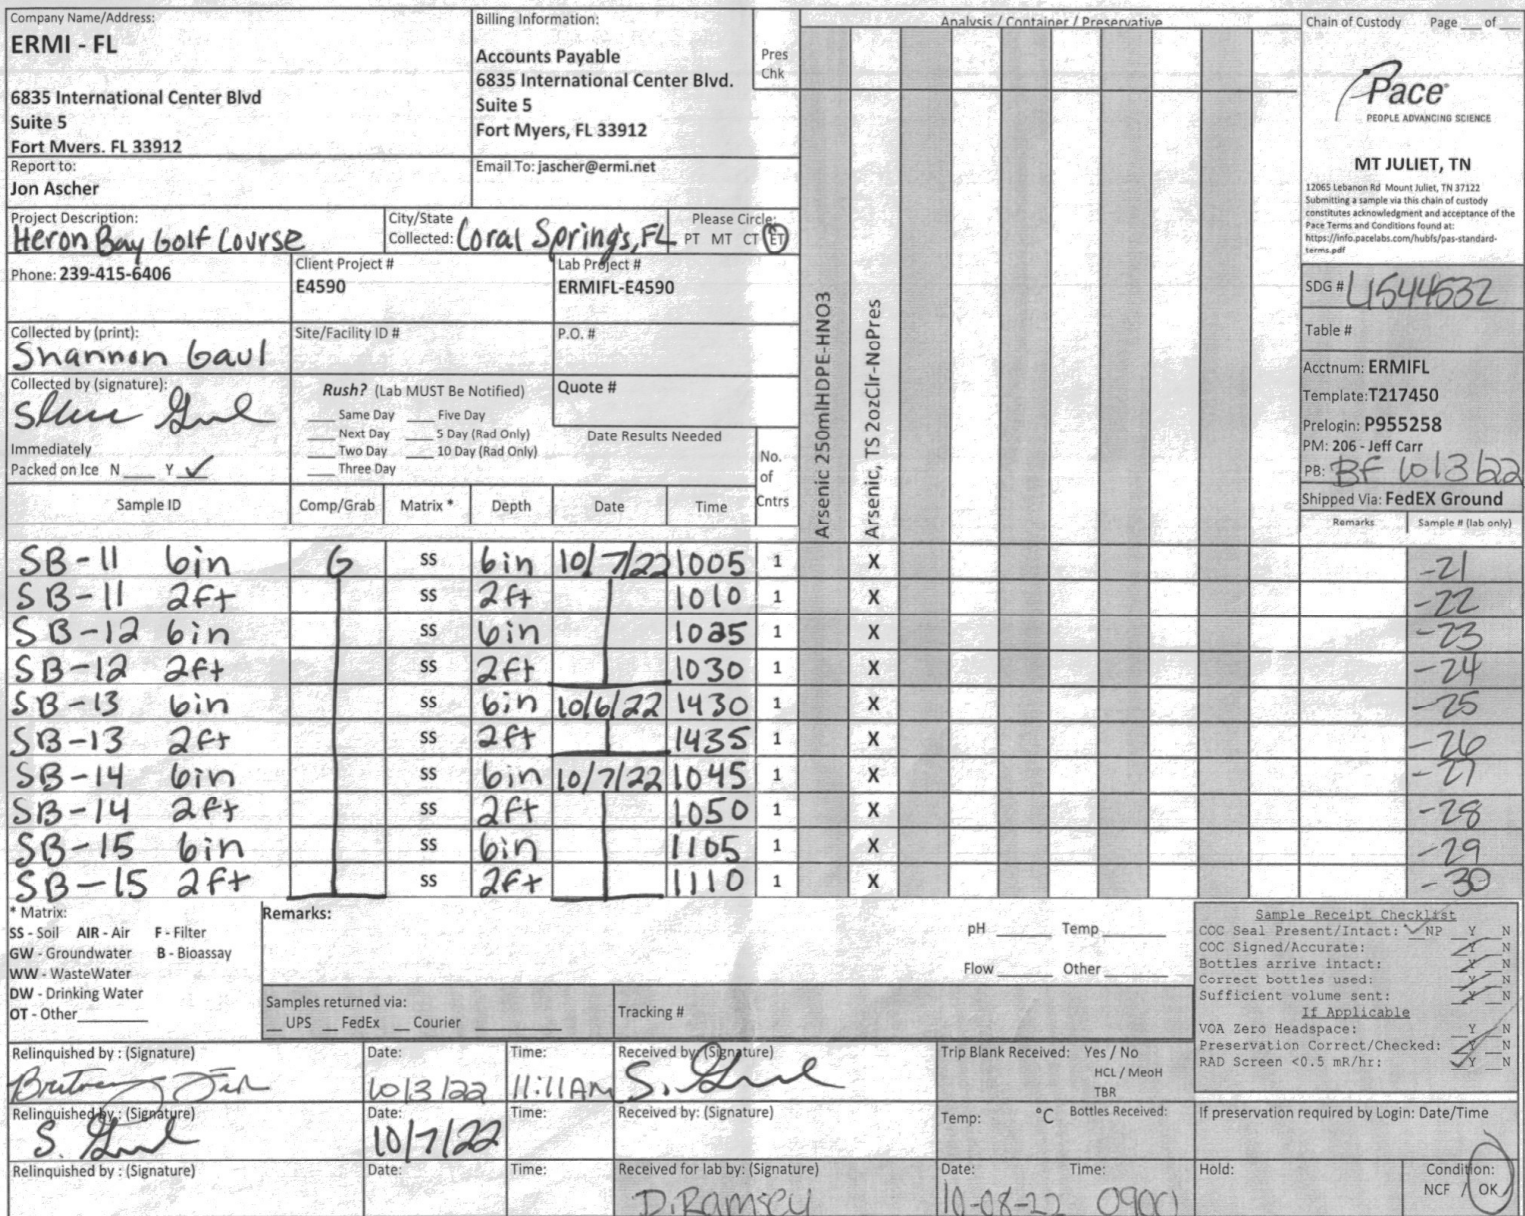 Company Name/Address:
ERMI - FL
6835 International Center Blvd
Suite 5
Fort Myers, FL 33912
Billing Information:
Accounts Payable
6835 International Center Blvd.
Suite 5
Fort Myers, FL 33912
Pres
Chk
Analysis / Container / Preservative
Chain of Custody Page ___ of ___
Pace
PEOPLE ADVANCING SCIENCE
MT JULIET, TN
12065 Lebanon Rd Mount Juliet, TN 37122
Submitting a sample via this chain of custody
constitutes acknowledgment and acceptance of the
Pace Terms and Conditions found at:
https://info.pacelabs.com/hubfs/pas-standard-
terms.pdf
Report to:
Jon Ascher
Email To: jascher@ermi.net
Project Description:
Heron Bay Golf Course
City/State
Collected: Coral Springs, FL
Please Circle:
PT MT CT ET
Phone: 239-415-6406
Client Project #
E4590
Lab Project #
ERMIFL-E4590
SDG # L1544532
Table #
Collected by (print):
Shannon Gaul
Site/Facility ID #
P.O. #
Acctnum: ERMIFL
Template:T217450
Prelogin: P955258
PM: 206 - Jeff Carr
PB: BF 10/3/22
Shipped Via: FedEX Ground
Collected by (signature):
Rush? (Lab MUST Be Notified)
___ Same Day ___ Five Day
___ Next Day ___ 5 Day (Rad Only)
___ Two Day ___ 10 Day (Rad Only)
___ Three Day
Quote #
Date Results Needed
Immediately
Packed on Ice N ___ Y ✓
No.
of
Cntrs
Arsenic 250mlHDPE-HNO3
Arsenic, TS 2ozClr-NoPres
Sample ID Comp/Grab Matrix * Depth Date Time Remarks Sample # (lab only)
SB-11 6in G SS 6in 10/7/22 1005 1 X -21
SB-11 2ft SS 2ft 1010 1 X -22
SB-12 6in SS 6in 1025 1 X -23
SB-12 2ft SS 2ft 1030 1 X -24
SB-13 6in SS 6in 10/6/22 1430 1 X -25
SB-13 2ft SS 2ft 1435 1 X -26
SB-14 6in SS 6in 10/7/22 1045 1 X -27
SB-14 2ft SS 2ft 1050 1 X -28
SB-15 6in SS 6in 1105 1 X -29
SB-15 2ft SS 2ft 1110 1 X -30
* Matrix:
SS - Soil AIR - Air F - Filter
GW - Groundwater B - Bioassay
WW - WasteWater
DW - Drinking Water
OT - Other
Remarks:
pH ___ Temp ___
Flow ___ Other ___
Samples returned via:
__ UPS __ FedEx __ Courier
Tracking #
Sample Receipt Checklist
COC Seal Present/Intact: ✓ NP _Y _N
COC Signed/Accurate: ✓Y _N
Bottles arrive intact: ✓Y _N
Correct bottles used: ✓Y _N
Sufficient volume sent: ✓Y _N
If Applicable
VOA Zero Headspace: _Y _N
Preservation Correct/Checked: ✓Y _N
RAD Screen <0.5 mR/hr: ✓Y _N
Relinquished by : (Signature)
Date: 10/3/22
Time: 11:11AM
Received by: (Signature)
S. Gaul
Trip Blank Received: Yes / No
HCL / MeoH
TBR
Relinquished by : (Signature)
S. Gaul
Date: 10/7/22
Time:
Received by: (Signature)
Temp: °C Bottles Received:
If preservation required by Login: Date/Time
Relinquished by : (Signature)
Date:
Time:
Received for lab by: (Signature)
D. Ramsey
Date: 10-08-22
Time: 0900
Hold:
Condition:
NCF / OK